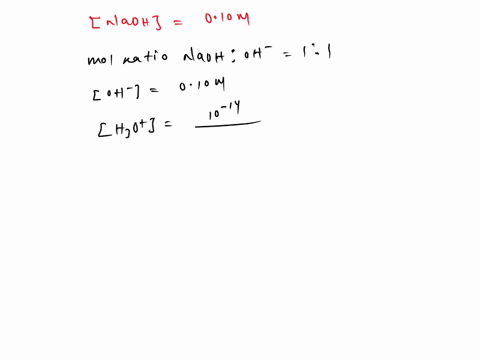 [NaOH] = 0.10M
mol ratio NaOH : OH⁻ = 1 : 1
[OH⁻] = 0.10M
[H₃O⁺] = 10⁻¹⁴